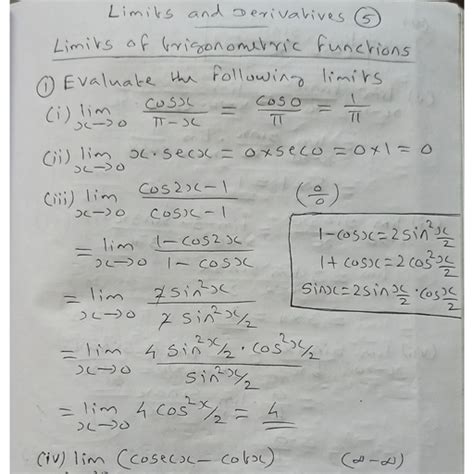 Limits and Derivatives ⑤
Limits of trigonometric functions
① Evaluate the following limits
(i) lim x→0 cosx/(π-x) = cos0/π = 1/π
(ii) lim x→0 x.secx = 0xsec0 = 0x1 = 0
(iii) lim x→0 (cos2x-1)/(cosx-1) (0/0)
= lim x→0 (1-cos2x)/(1-cosx)
1-cosx=2sin²x/2
1+cosx=2cos²x/2
sinx=2sinx/2.cosx/2
= lim x→0 2sin²x/2sin²x/2
= lim x→0 4sin²x/2.cos²x/2/sin²x/2
= lim x→0 4cos²x/2 = 4
(iv) lim (cosecx-cotx) (∞-∞)